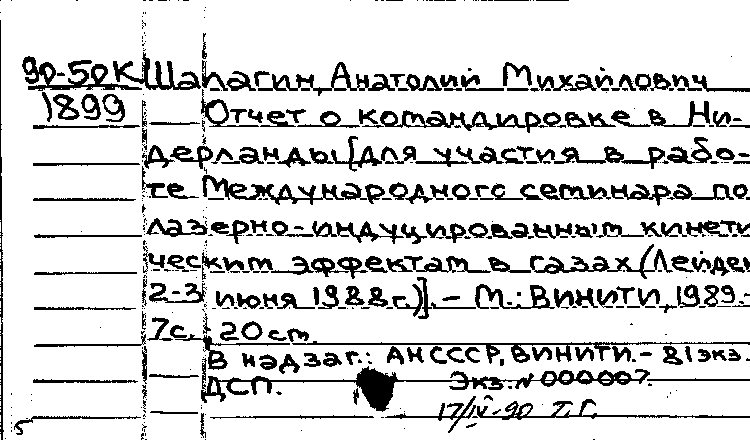 90-50К Шапагин, Анатолий Михайлович
1899 Отчет о командировке в Ни-
дерланды [для участия в рабо-
те Международного семинара по
лазерно-индуцированным кинети
ческим эффектам в газах (Лейден
2-3 июня 1988г.)]. - М.: ВИНИТИ, 1989.-
7с.; 20 см.
В надзаг.: АН СССР, ВИНИТИ. - 81 экз.
ДСП. Экз. № 000007.
17/IV-90 Т.Г.
5